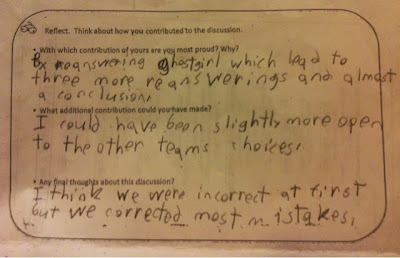 Reflect. Think about how you contributed to the discussion.
• With which contribution of yours are you most proud? Why?
By reanswering ghostgirl which lead to
three more reanswerings and almost
a conclusion.
• What additional contribution could you have made?
I could have been slightly more open
to the other teams choices.
• Any final thoughts about this discussion?
I think we were incorrect at first
but we corrected most mistakes.